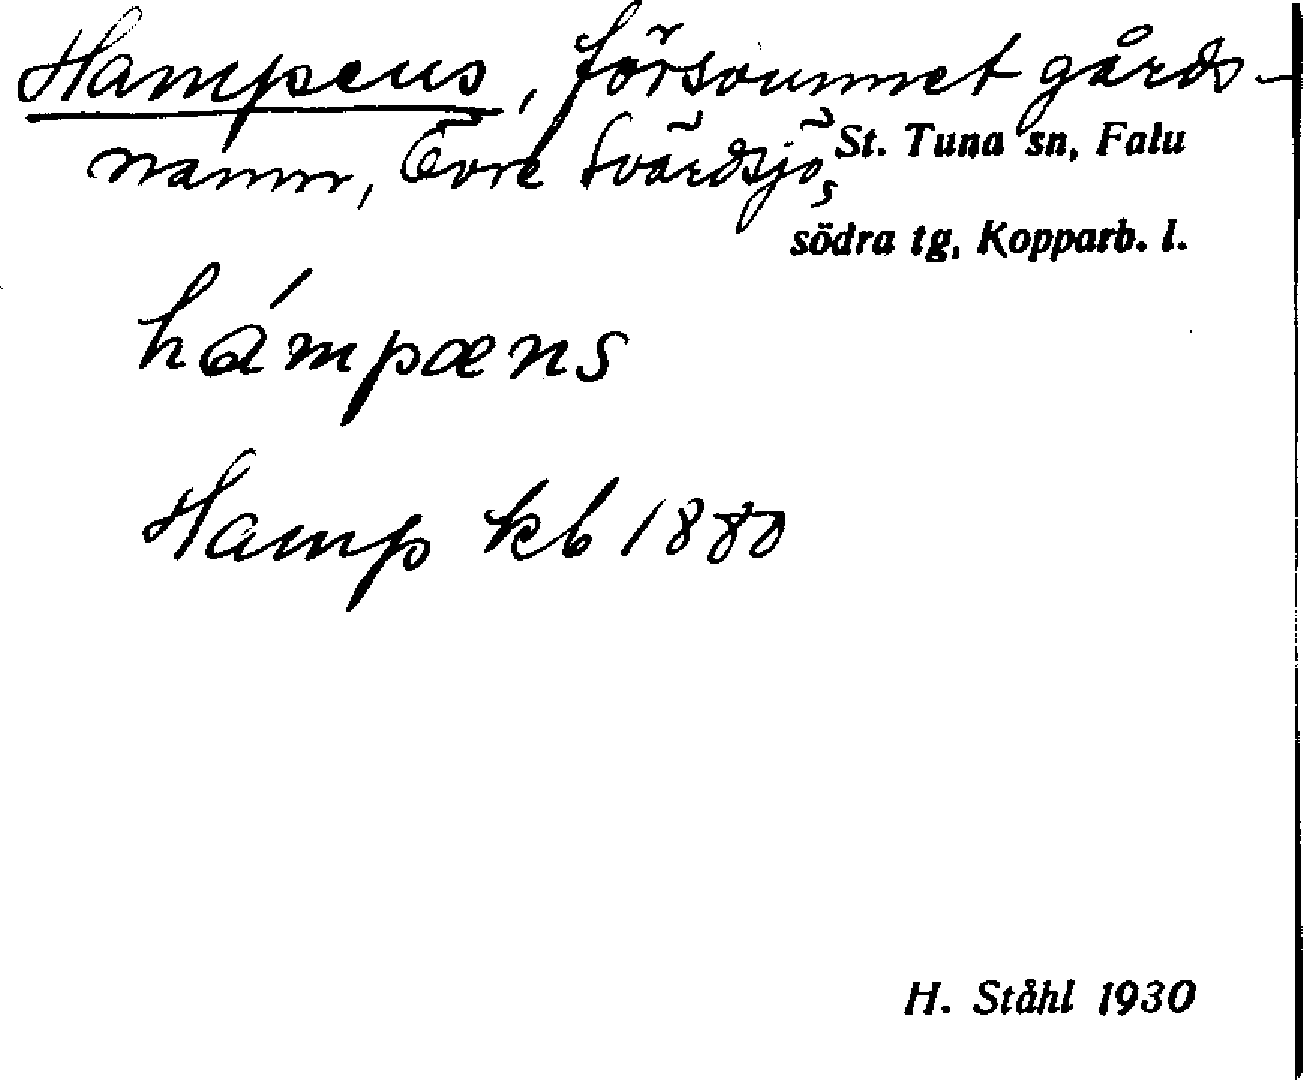 Hampens, försvunnet gårds-
namn, Övre Svärdsjö, St. Tuna sn, Falu
södra tg, Kopparb. l.
hámpæns
Hamp kb 1880
H. Ståhl 1930